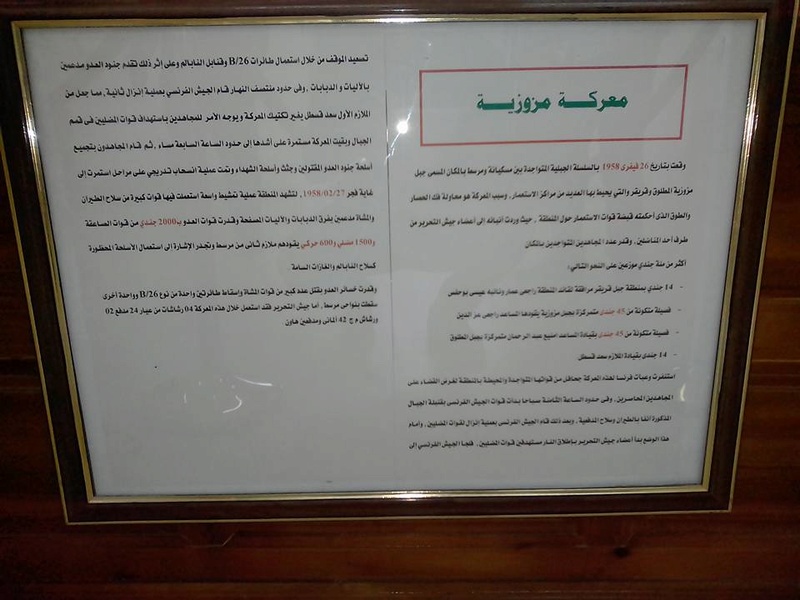 معركة مزوزية
وقعت بتاريخ 26 فيفري 1958 بالسلسلة الجبلية المتواجدة بين مسكيانة ومرسط بالمكان المسمى جبل
مزوزية المطلوق وقريقر والتي يحيط بها العديد من مراكز الاستعمار، وسبب المعركة هو محاولة فك الحصار
والطوق الذي أحكمته قبضة قوات الاستعمار حول المنطقة، حيث وردت أنبائه إلى أعضاء جيش التحرير من
طرف أحد المناضلين، وقدر عدد المجاهدين المتواجدين بالمكان
أكثر من مئة جندي موزعين على النحو التالي:
- 14 جندي بمنطقة جبل قريقر مرافقة لقائد المنطقة راجعي عمار ونائبه عيسى بوحفص
- فصيلة متكونة من 45 جندي متمركزة بجبل مزوزية يقودها المساعد راجعي عز الدين
- فصيلة متكونة من 45 جندي بقيادة المساعد امنيع عبد الرحمان متمركزة بجبل المطلوق
- 14 جندي بقيادة الملازم سعد قسطل
استنفرت وعبأت فرنسا لهذه المعركة جحافل من قواتها المتواجدة والمحيطة بالمنطقة لغرض القضاء على
المجاهدين المحاصرين، وفي حدود الساعة الثامنة صباحا بدأت قوات الجيش الفرنسي بقنبلة الجبال
المذكورة آنفا بالطيران وسلاح المدفعية، وبعد ذلك قام الجيش الفرنسي بعملية إنزال لقوات المضليين، وأمام
هذا الوضع بدأ أعضاء جيش التحرير بإطلاق النار مستهدفين قوات المضليين، فلجأ الجيش الفرنسي إلى
تصعيد الموقف من خلال استعمال طائرات B/26 وقنابل النابالم وعلى إثر ذلك تقدم جنود العدو مدعمين
بالآليات و الدبابات، وفي حدود منتصف النهار قام الجيش الفرنسي بعملية إنزال ثانية، مما جعل من
الملازم الأول سعد قسطل يغير تكتيك المعركة ويوجه الأمر للمجاهدين باستهداف قوات المضليين في قمم
الجبال وبقيت المعركة مستمرة على أشدها إلى حدود الساعة السابعة مساء، ثم قام المجاهدون بتجميع
أسلحة جنود العدو المقتولين وجثث وأسلحة الشهداء وتمت عملية انسحاب تدريجي على مراحل استمرت إلى
غاية فجر 1958/02/27، لتشهد المنطقة عملية تمشيط واسعة استعملت فيها قوات كبيرة من سلاح الطيران
والمشاة مدعمين بفرق الدبابات والآليات المصفحة وقدرت قوات العدو بـ2000 جندي من قوات الصاعقة
و1500 مضلي و600 حركي يقودهم ملازم ثاني من مرسط وتجدر الإشارة إلى استعمال الأسلحة المحظورة
كسلاح النابالم والغازات السامة
وقدرت خسائر العدو بقتل عدد كبير من قوات المشاة وإسقاط طائرتين واحدة من نوع B/26 وواحدة أخرى
سقطت بنواحي مرسط، أما جيش التحرير فقد استعمل خلال هذه المعركة 04 رشاشات من عيار 24 مدفع 02
ورشاش م ج 42 ألماني ومدفعين هاون